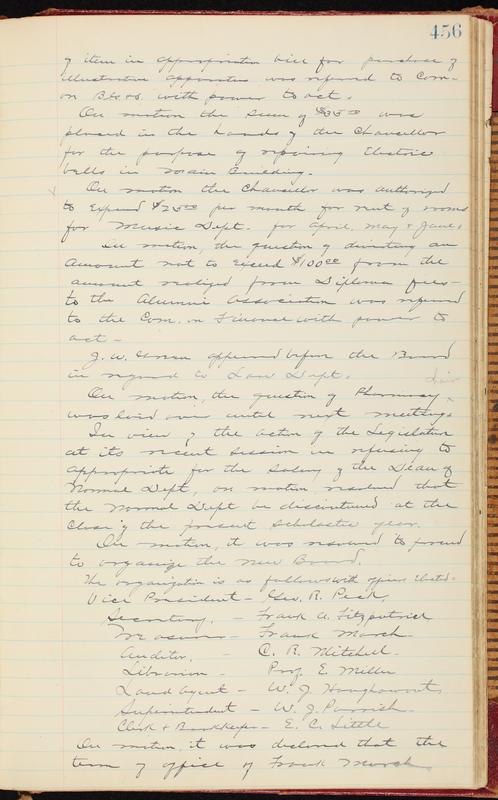 456
of item in appropriation bill for purchase of
illustrative apparatus was referred to Com-
on B&G. with power to act.
On motion the sum of $35 00 was
placed in the hands of the Chancellor
for the purpose of repairing Electric
bells in Main Building.
On motion the Chancellor was authorized
to Expend $25 00 per month for rent of rooms
for Music Dept. for April, May & June.
On motion, the question of donating an
amount not to exceed $100 00 from the
amount realized from Diploma fees
to the Alumni Association was referred
to the Com. on Finance with power to
act -
J. W. Green appeared before the Board
in regard to Law Dept.
On motion, the question of Pharmacy
was laid over until next meeting.
In view of the action of the Legislature
at its recent session in refusing to
appropriate for the salary of the Dean of
Normal Dept, on motion, resolved that
the Normal Dept be discontinued at the
close of the present scholastic year.
On motion, it was resolved to proceed
to organize the new Board.
The organization is as follows with officers Elected.
Vice President - Geo. R. Peck,
Secretary, - Frank A. Fitzpatrick
Treasurer - Frank March
Auditor, - C. R. Mitchell.
Librarian - Prof. E. Miller
Land Agent - W. J. Haughawout,
Superintendent - W. J. Parrish.
Clerk & Bookkeeper - E. C. Little
On motion, it was declared that the
term of office of Frank March